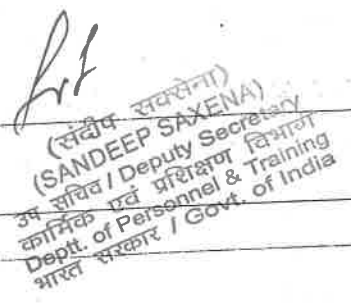 (संदीप सक्सेना)
(SANDEEP SAXENA)
उप सचिव / Deputy Secretary
कार्मिक एवं प्रशिक्षण विभाग
Deptt. of Personnel & Training
भारत सरकार / Govt. of India